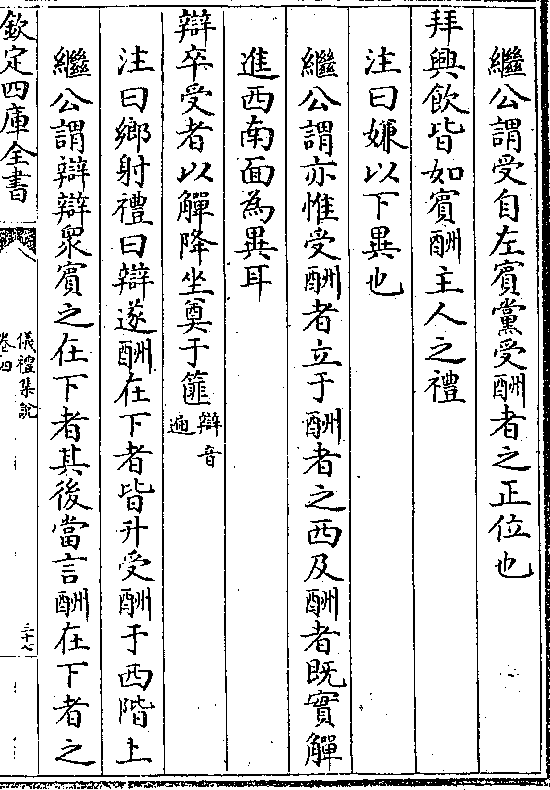 繼公謂受自左賓黨受酬者之正位也
拜興飲皆如賓酬主人之禮
注曰嫌以下異也
繼公謂亦惟受酬者立于酬者之西及酬者既實觶
進西南面為異耳
辯卒受者以觶降坐奠于篚辯音遍
注曰鄉射禮曰辯遂酬在下者皆升受酬于西階上
繼公謂辯辯衆賓之在下者其後當言酬在下者之
欽定四庫全書
儀禮集說
卷四
三十七